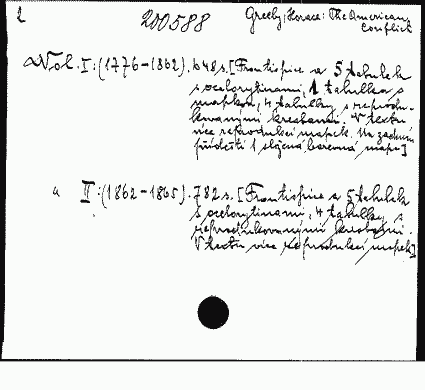 2 200588 Greely, Horace: The American
Conflict
Vol. I: (1776-1862). 648 s. [Frontispice a 5 tabulek
s ocelorytinami, 1 tabulka s
mapkou, 4 tabulky s reprodu-
kovanými kresbami. V textu
více reprodukcí mapek. Na zadním
přídeští 1 složená barevná mapa]
" II: (1862-1865). 782 s. [Frontispice a 5 tabulek
s ocelorytinami, 4 tabulky s
reprodukovanými kresbami.
V textu více reprodukcí mapek]